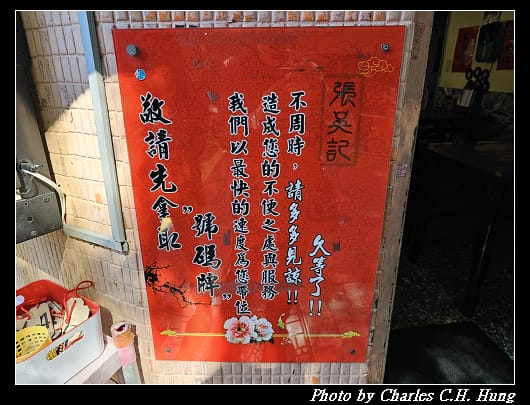 敬請先拿取
"號碼牌"
我們以最快的速度為您帶位
造成您的不便之處與服務
不周時，請多多見諒!!
久等了!!
張吳記
Photo by Charles C.H. Hung